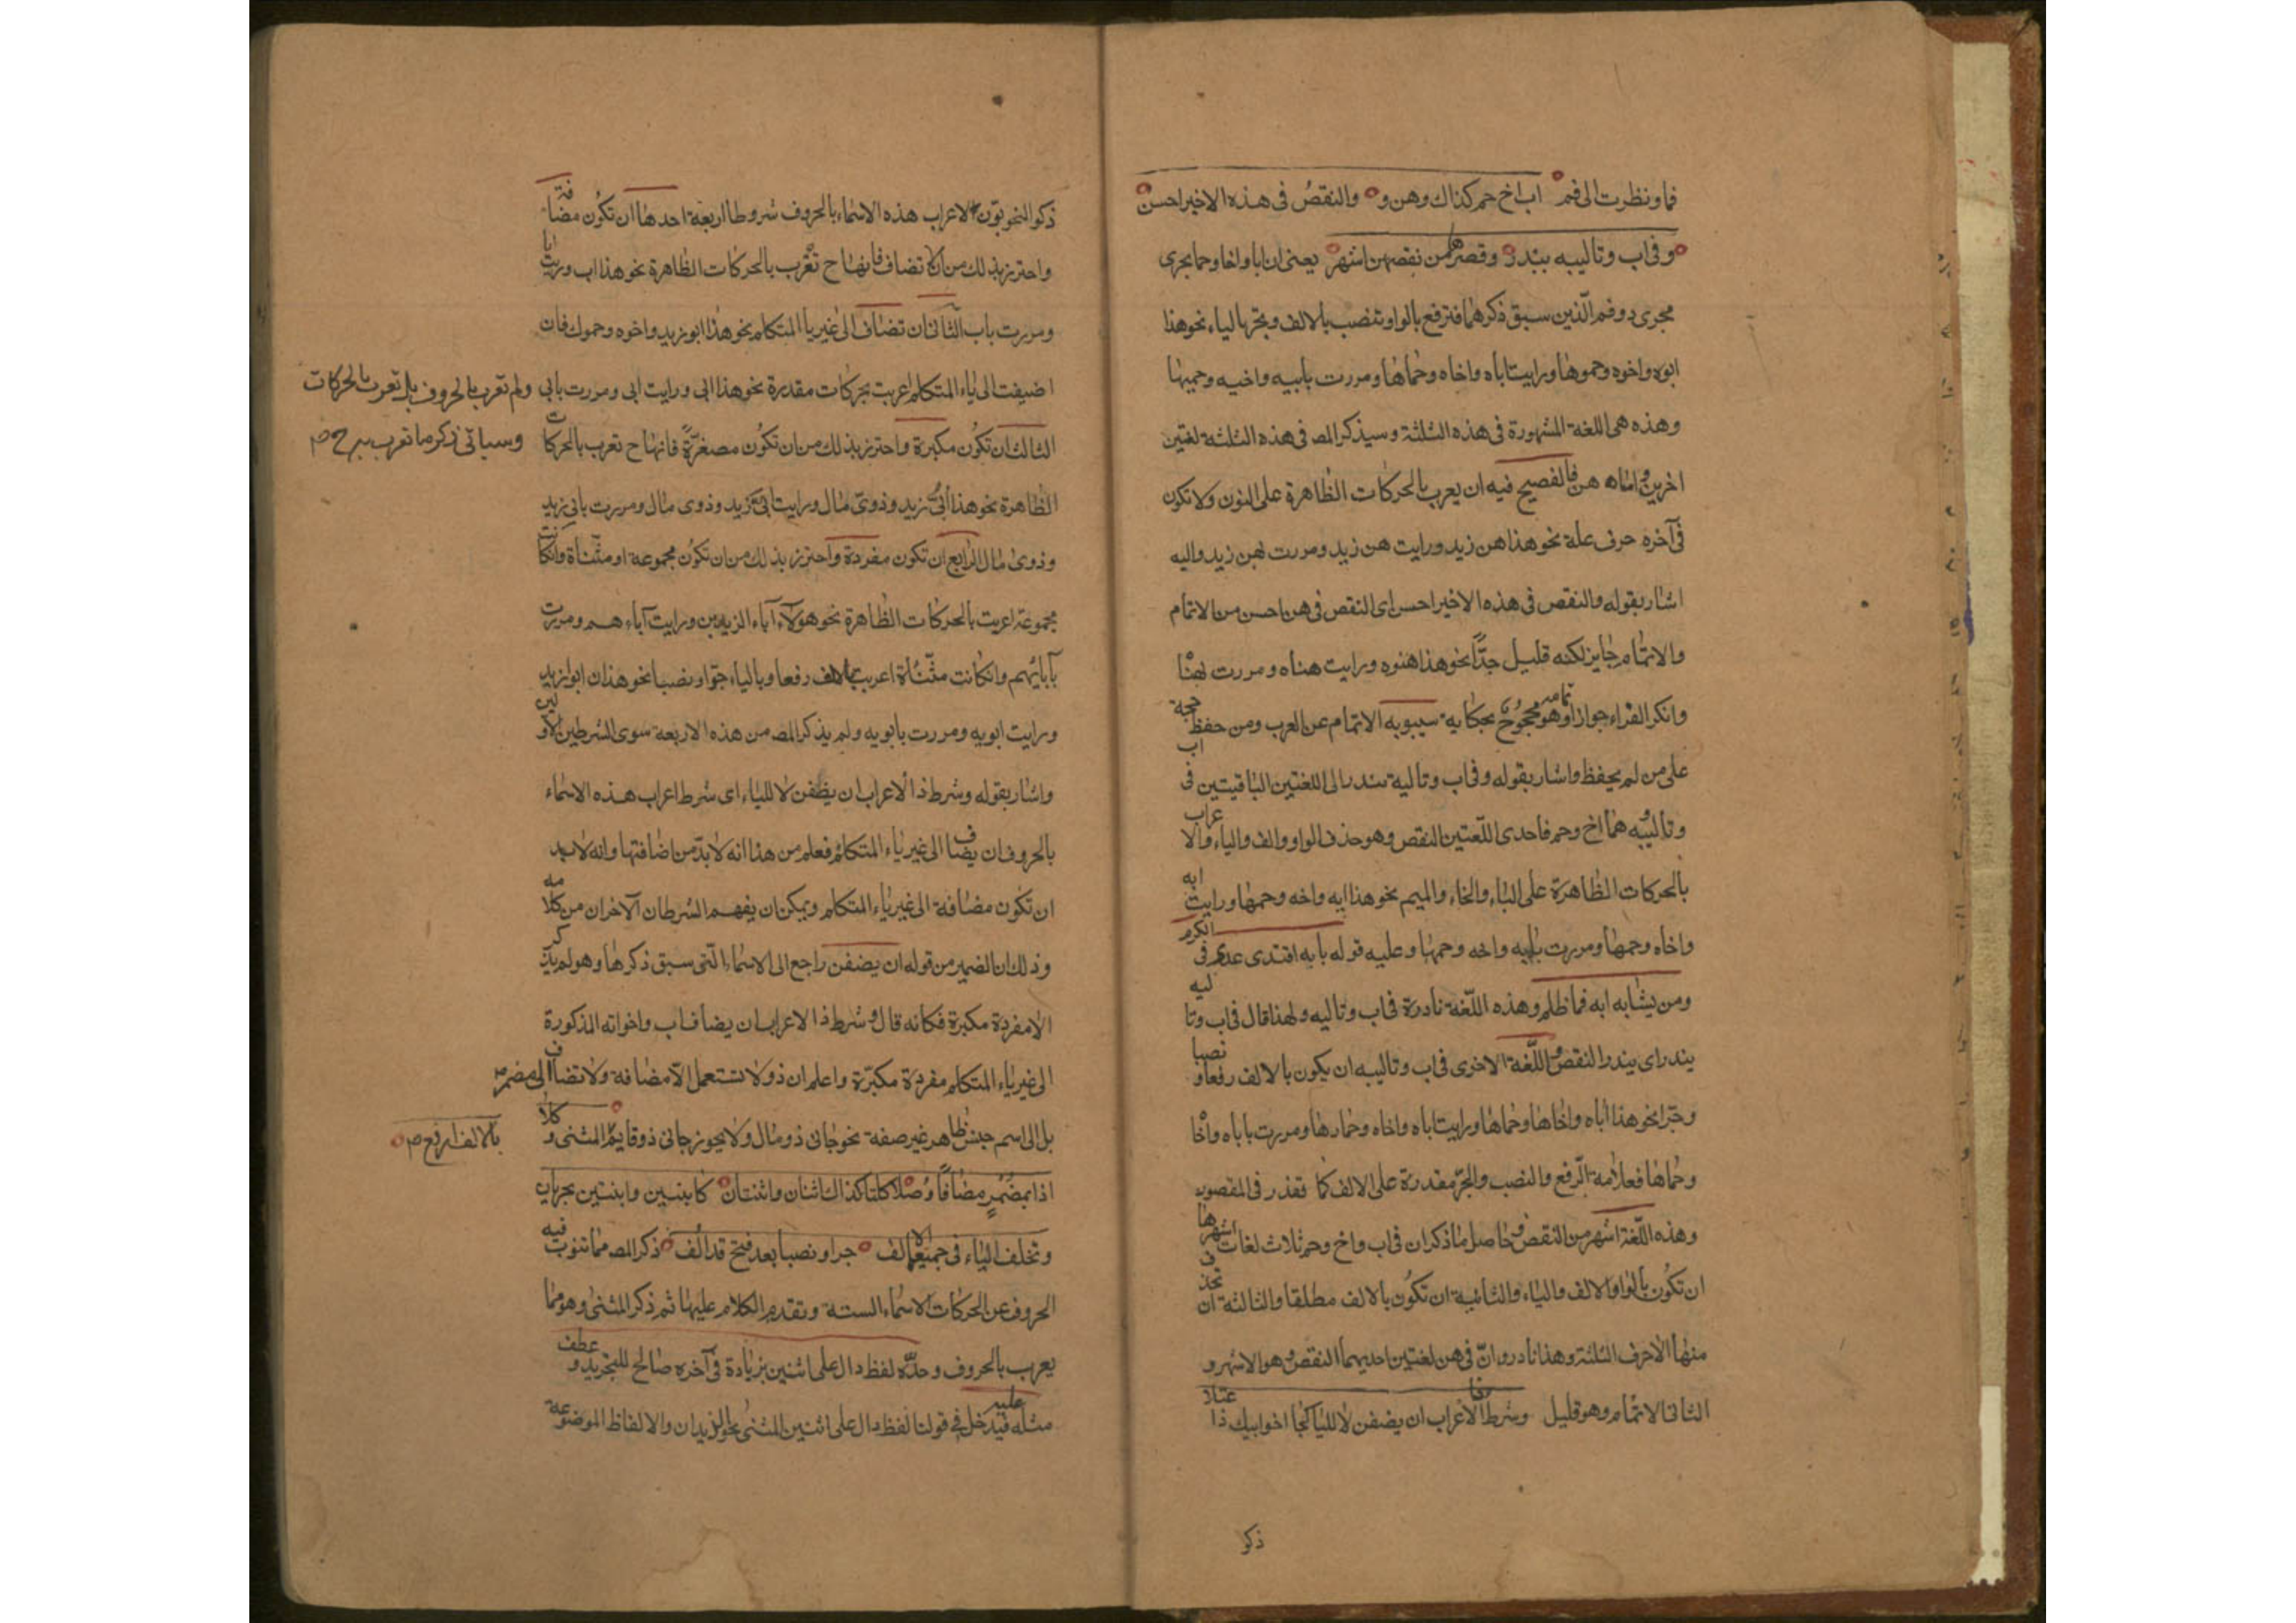 فما ونظرت الى فم اب اخ حم كذاك وهن و والنقصُ فى هذه الاخير احسن
وفى اب وتالييه يندر وقصرها من نقصهن اشهر يعنى ان ابا واخا وحما يجرى
مجرى ذو وفم الّذين سبق ذكرهما فترفع بالواو وتنصب بالالف وتجر بالياء نحو هذا
ابوه واخوه وحموها ورايت اباه واخاه وحماها ومررت بابيه واخيه وحميها
وهذه هى اللغة المشهورة فى هذه الثلثة وسيذكر المص فى هذه الثلثة لغتين
اخريين واما هن فالفصيح فيه ان يعرب بالحركات الظاهرة على النون ولا تكون
فى آخره حرف علة نحو هذا هن زيد ورايت هن زيد ومررت بهن زيد واليه
اشار بقوله والنقص فى هذه الاخير احسن اى النقص فى هن احسن من الاتمام
والاتمام جايز لكنه قليل جدًّا نحو هذا هنوه ورايت هناه ومررت بهنا
وانكر الفراء جواز اتمامه وهو محجوج بحكاية سيبويه الاتمام عن العرب ومن حفظ حجة
على من لم يحفظ واشار بقوله وفى اب وتاليه يندر الى اللغتين الباقيتين فى اب
وتالييه وهما اخ وحم فاحدى اللّغتين النقص وهو حذف الواو والف والياء والاعراب
بالحركات الظاهرة على الباء والخاء والميم نحو هذا ابه واخه وحمها ورايت ابه
واخاه وحمها ومررت بابه واخه وحمها وعليه قوله بابه اقتدى عدى فى الكرم
ومن يشابه ابه فما ظلم وهذه اللّغة نادرة فى اب وتاليه ولهذا قال فى اب وتاليه
يندر اى يندر النقص واللّغة الاخرى فى اب وتالييه ان يكون بالالف رفعا ونصبا
وجرا نحو هذا اباه واخاها وحماها ورايت اباه واخاه وحمارها ومررت باباه واخا
وحماها فعلامة الّرفع والنصب والجرّ مقدرة على الالف كما تقدر فى المقصور
وهذه اللّغة اشهر من النقص وحاصل ما ذكر ان فى اب واخ وحم ثلاث لغات اشهرها
ان تكون بالواو والالف والياء والثانية ان تكون بالالف مطلقا والثالثة ان تحذف
منها الاحرف الثلثة وهذا نادر وانّ فى هن لغتين احديهما النقص وهو الاشهر و
الثانى الاتمام وهو قليل وشرط ذا الاعراب ان يضفن لا لليا كجا اخو ابيك ذا اعتلا
ذكر
ذكر النحويّون لاعراب هذه الاسماء بالحروف شروطا اربعة احدها ان تكون مضافة
واحترز بذلك من ان لا تضاف فانها ح تعرب بالحركات الظاهرة نحو هذا اب ورايت ابا
ومررت باب الثانى ان تضاف الى غير يا المتكلم نحو هذا ابو زيد واخوه وحموك فان
اضيفت الى ياء المتكلم اعربت بحركات مقدرة نحو هذا ابى ورايت ابى ومررت بابى ولم تعرب بالحروف بل تعرب بالحركات
الثالث ان تكون مكبرة واحترز بذلك من ان تكون مصغرّةً فانها ح تعرب بالحركات وسياتى ذكر ما تعرب
الظاهرة نحو هذا أُبىّ زيد وذوىّ مال ورايت ابىّ زيد وذوى مال ومررت بابى زيد
وذوى مال الرابع ان تكون مفردة واحترز بذلك من ان تكون مجموعة او مثنّاة فان كانت
مجموعة اعربت بالحركات الظاهرة نحو هؤلآء آباء الزيدين ورايت آباءهم ومررت
بآبائهم وان كانت مثنّاة اعرب بالالف رفعا وبالياء جرّا ونصبا نحو هذان ابوا زيد
ورايت ابويه ومررت بابويه ولم يذكر المص من هذه الاربعة سوى الشرطين الاولين
واشار بقوله وشرط ذا الاعراب ان يظفن لا للياء اى شرط اعراب هذه الاسماء
بالحروف ان يضاف الى غير ياء المتكلم فعلم من هذا انه لا بدّ من اضافتها وانه لا بد
ان تكون مضافة الى غير ياء المتكلم ويمكن ان يفهم الشرطان الآخران من كلامه
وذلك ان الضمير من قوله ان يضفن راجع الى الاسماء الّتى سبق ذكرها وهو لم يذكر
الا مفردة مكبرة فكانه قال وشرط ذا الاعراب ان يضاف اب واخواته المذكورة
الى غير ياء المتكلم مفردة مكبّرة واعلم ان ذو لا تستعمل الّا مضافة ولا تضاف الى مضمر
بل الى اسم جنس ظاهر غير صفة نحو جانى ذو مال ولا يجوز جانى ذو قايم بالالف ارفع المثنى وكلا
اذا بمضمرٍ مضافًا وُصلا كلتا كذاك اثنان واثنتان كابنين وابنتين يجريان
وتخلف الياء فى جميعها الالف جرا ونصبا بعد فتح قد الف ذكر المص مما تنوب فيه
الحروف عن الحركات الاسماء الستة وتقدم الكلام عليها ثم ذكر المثنى وهو مما
يعرب بالحروف وحدّه لفظ دال على اثنين بزيادة فى آخره صالح للتجريد وعطف
مثله عليه فيدخل فى قولنا لفظ دال على اثنين المثنى نحو الزيدان والالفاظ الموضوعة